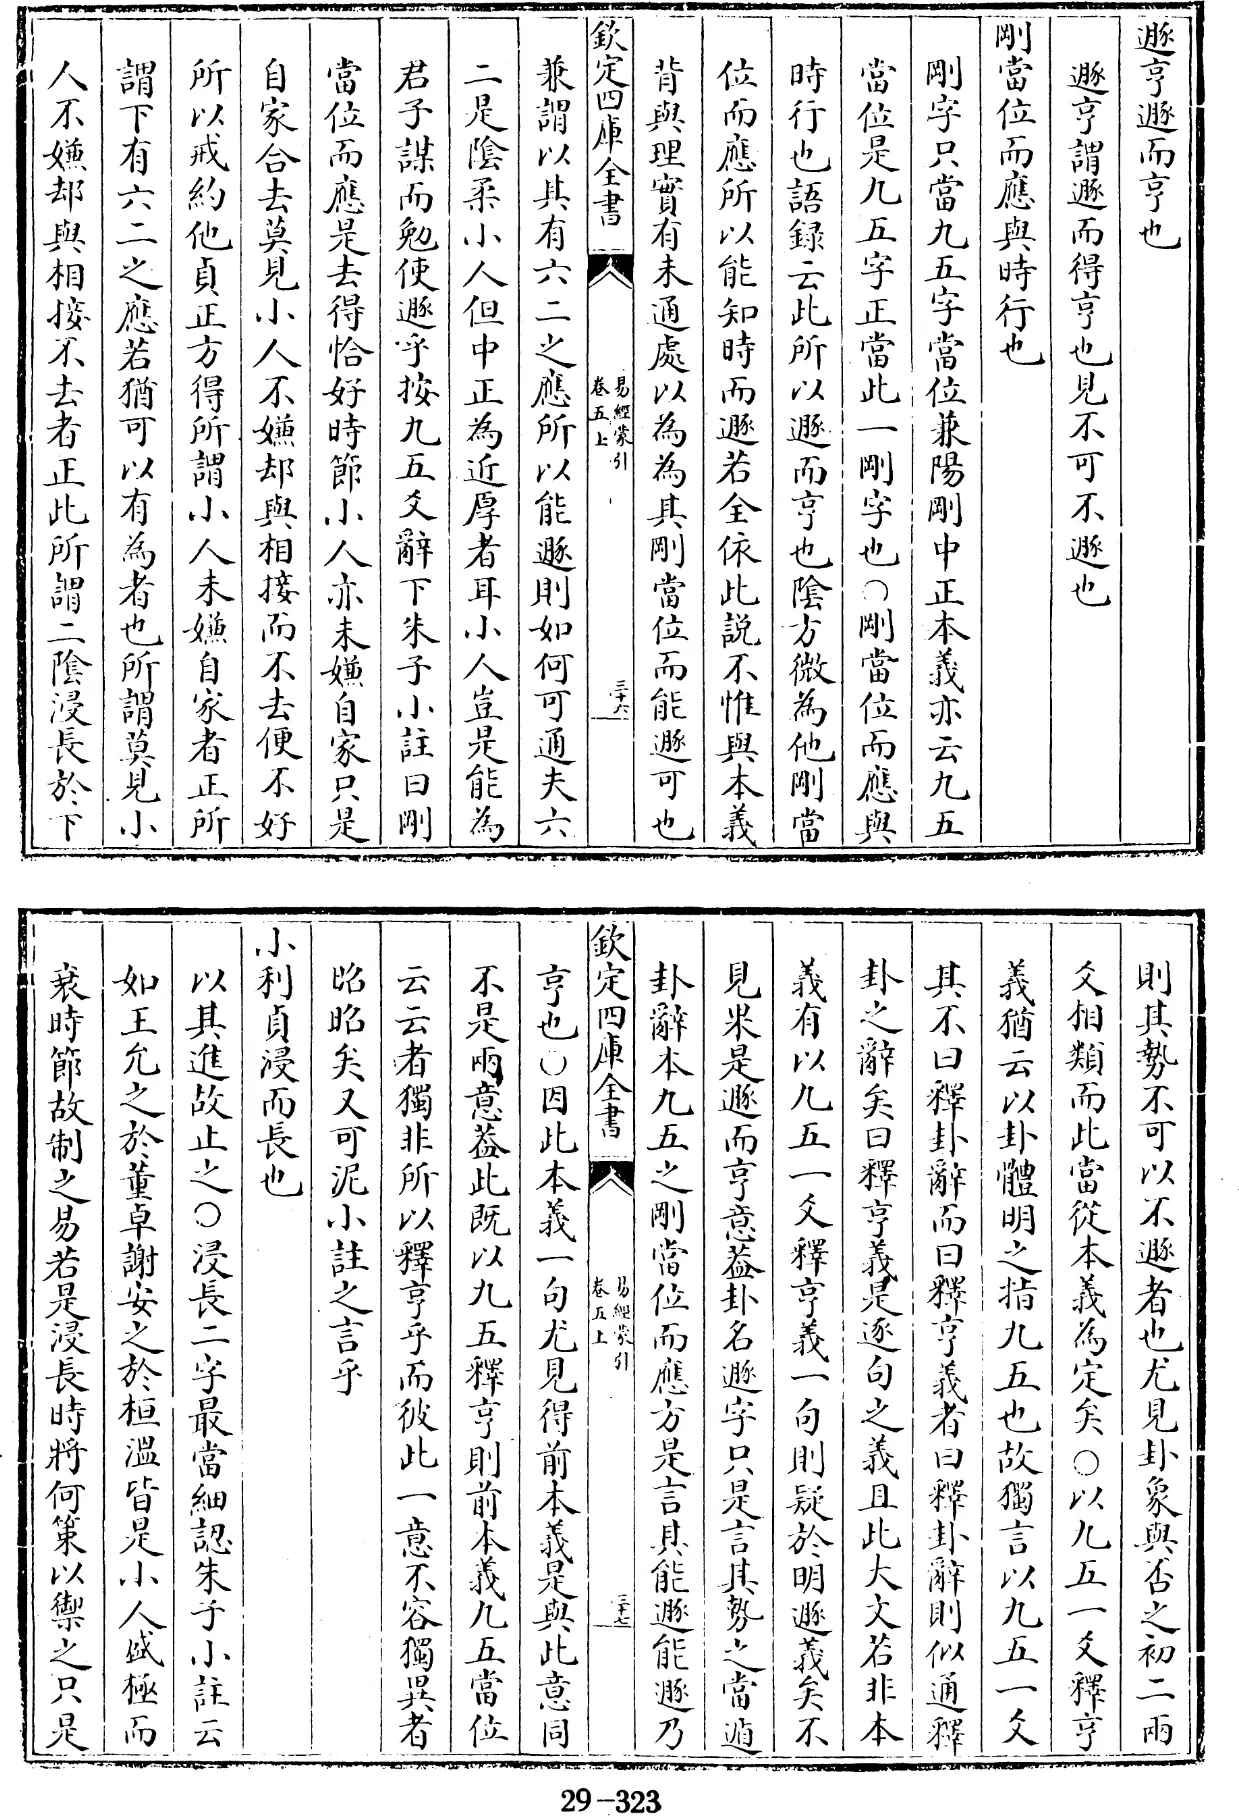 遯亨遯而亨也
遯亨謂遯而得亨也見不可不遯也
剛當位而應與時行也
剛字只當九五字當位兼陽剛中正本義亦云九五
當位是九五字正當此一剛字也○剛當位而應與
時行也語録云此所以遯而亨也陰方微為他剛當
位而應所以能知時而遯若全依此説不惟與本義
背與理實有未通處以為為其剛當位而能遯可也
欽定四庫全書
易經蒙引
卷五上
三十六
兼謂以其有六二之應所以能遯則如何可通夫六
二是陰柔小人但中正為近厚者耳小人豈是能為
君子謀而勉使遯乎按九五爻辭下朱子小註曰剛
當位而應是去得恰好時節小人亦未嫌自家只是
自家合去莫見小人不嫌却與相接而不去便不好
所以戒約他貞正方得所謂小人未嫌自家者正所
謂下有六二之應若猶可以有為者也所謂莫見小
人不嫌却與相接不去者正此所謂二陰浸長於下
則其勢不可以不遯者也尤見卦象與否之初二兩
爻相類而此當從本義為定矣○以九五一爻釋亨
義猶云以卦體明之指九五也故獨言以九五一爻
其不曰釋卦辭而曰釋亨義者曰釋卦辭則似通釋
卦之辭矣曰釋亨義是逐句之義且此大文若非本
義有以九五一爻釋亨義一句則疑於明遯義矣不
見米是遯而亨意葢卦名遯字只是言其勢之當遁
卦辭本九五之剛當位而應方是言其能遯能遯乃
欽定四庫全書
易經蒙引
卷五上
三十七
亨也○因此本義一句尤見得前本義是與此意同
不是兩意葢此既以九五釋亨則前本義九五當位
云云者獨非所以釋亨乎而彼此一意不容獨異者
昭昭矣又可泥小註之言乎
小利貞浸而長也
以其進故止之○浸長二字最當細認朱子小註云
如王允之於董卓謝安之於桓溫皆是小人盛極而
衰時節故制之易若是浸長時將何策以禦之只是
29-323